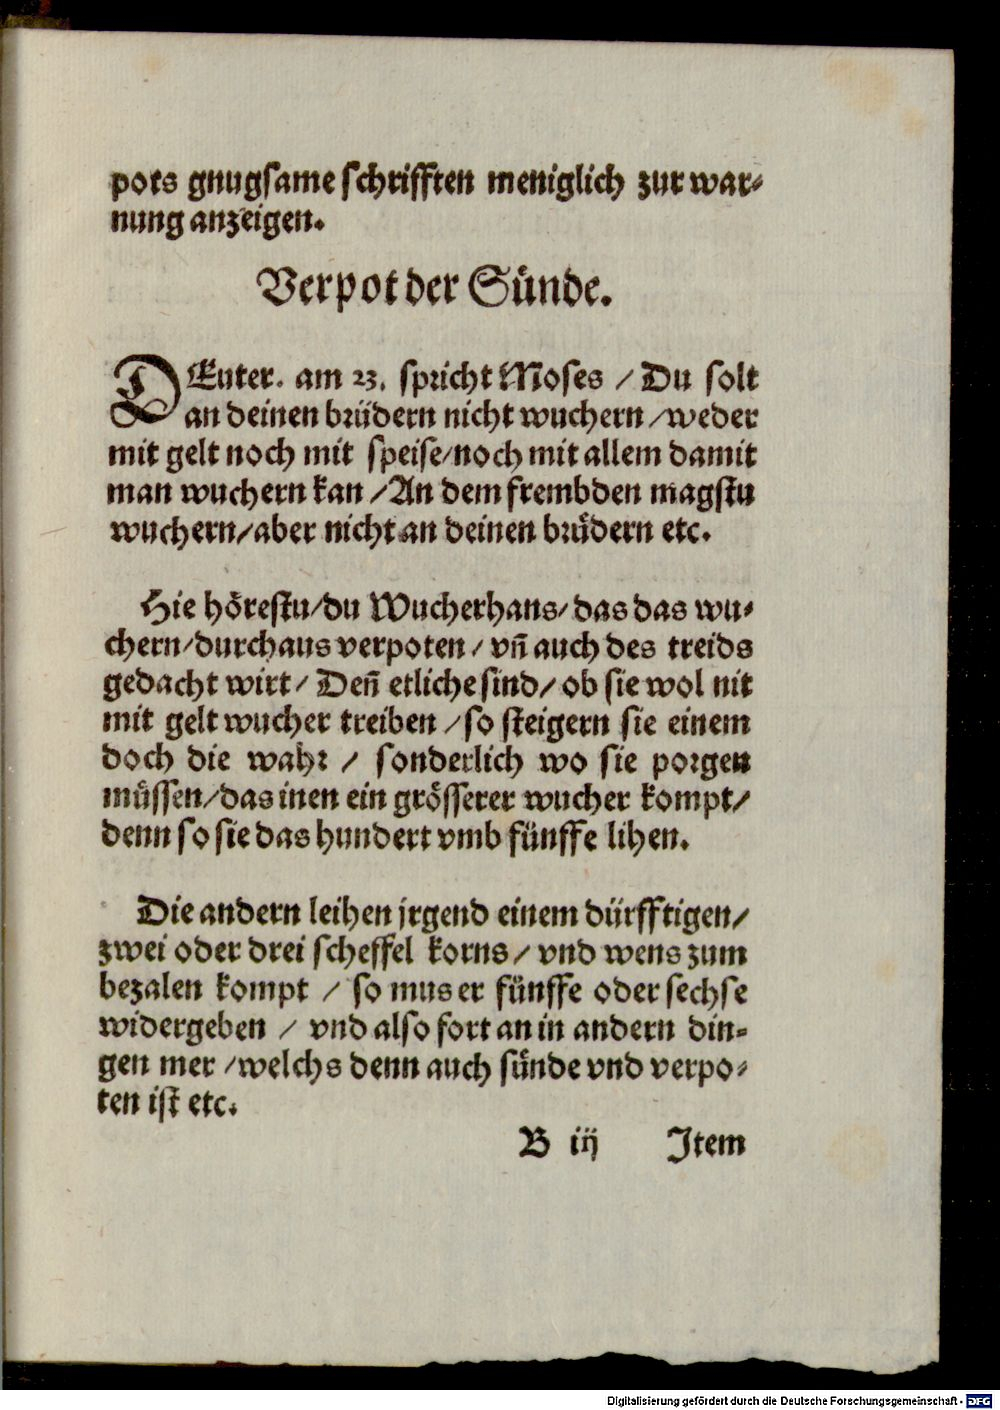 pots gnugsame schrifften meniglich zur war⸗
nung anzeigen.
Verpot der Sünde.
DEuter. am 23. spricht Moses / Du solt
an deinen brüdern nicht wuchern / weder
mit gelt noch mit speise / noch mit allem damit
man wuchern kan / An dem frembden magstu
wuchern / aber nicht an deinen brüdern etc.
Hie hörestu / du Wucherhans / das das wu⸗
chern / durchaus verpoten / vñ auch des treids
gedacht wirt / Deñ etliche sind / ob sie wol nit
mit gelt wucher treiben / so steigern sie einem
doch die wahr / sonderlich wo sie porgen
müssen / das inen ein grösserer wucher kompt /
denn so sie das hundert vmb fünffe lihen.
Die andern leihen jrgend einem dürfftigen /
zwei oder drei scheffel korns / vnd wens zum
bezalen kompt / so mus er fünffe oder sechse
widergeben / vnd also fort an in andern din⸗
gen mer / welchs denn auch sünde vnd verpo⸗
ten ist etc.
B iij Item
Digitalisierung gefördert durch die Deutsche Forschungsgemeinschaft - DFG